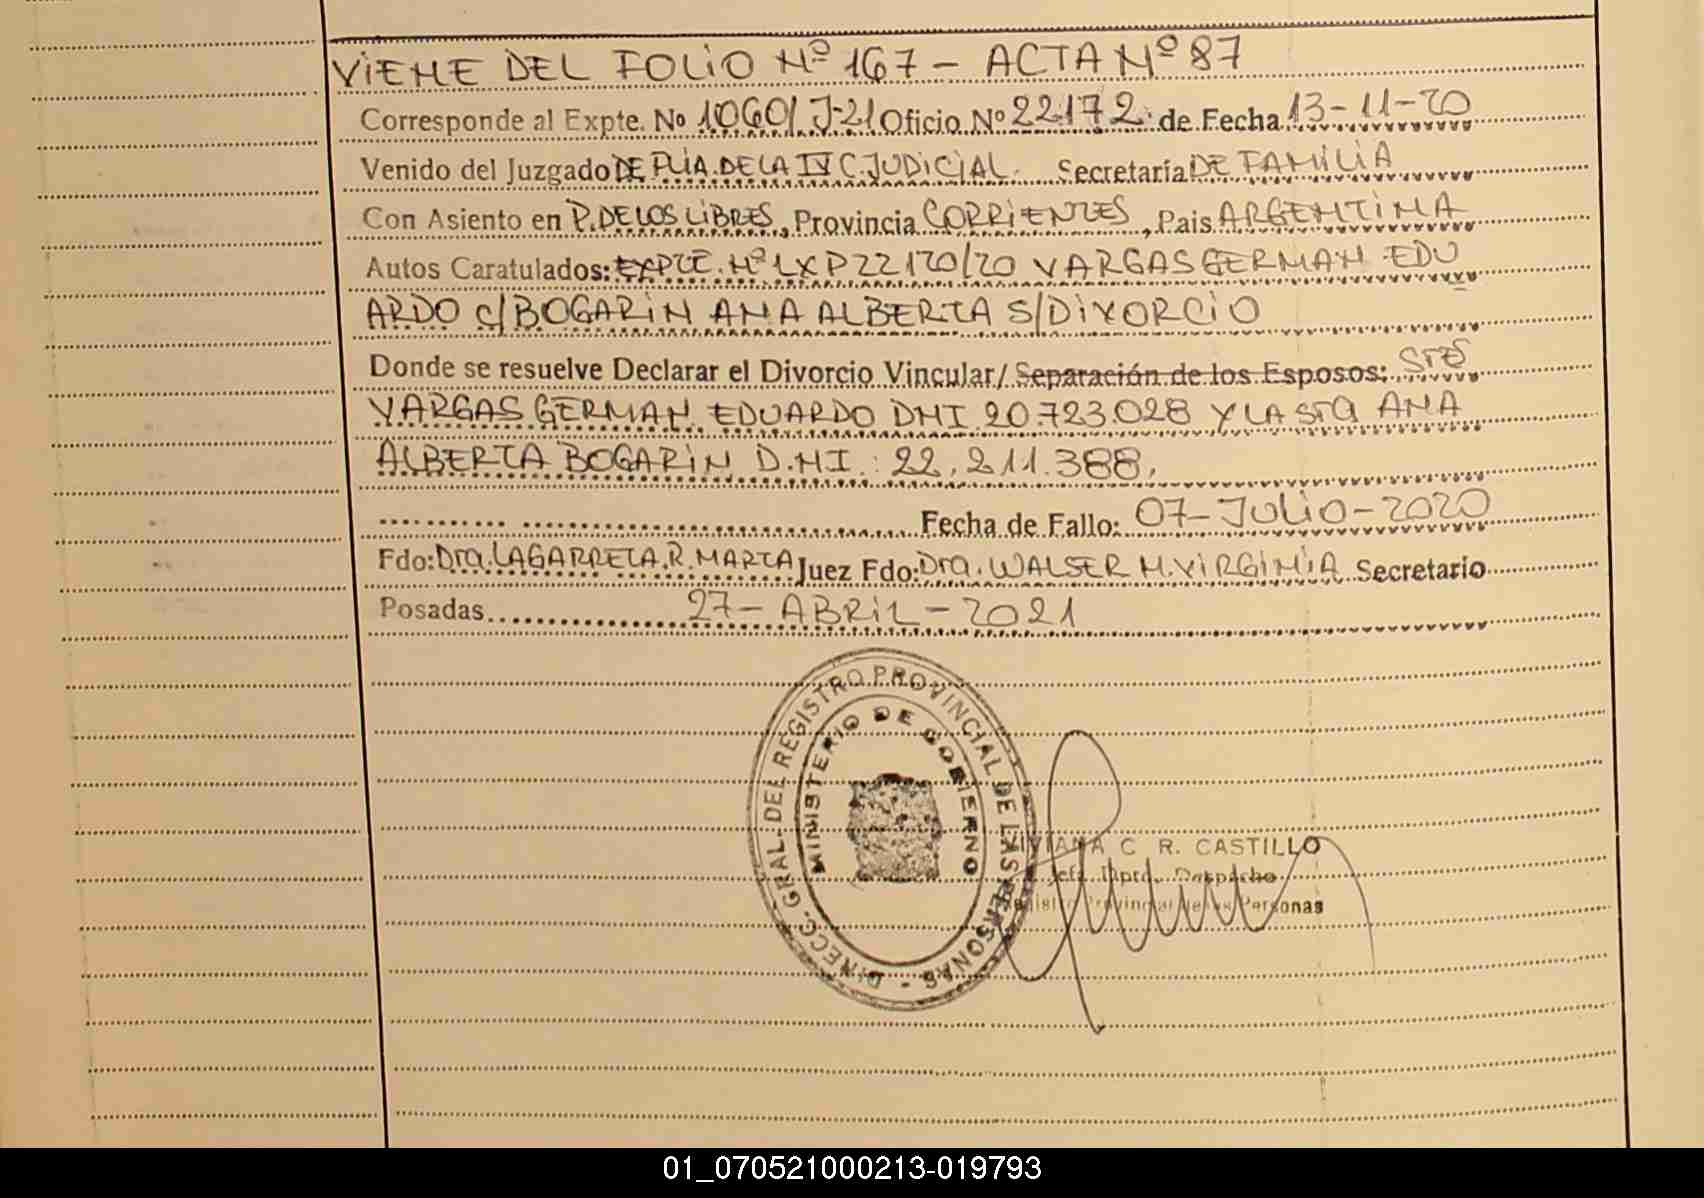 VIENE DEL FOLIO Nº 167 - ACTA Nº 87
Corresponde al Expte. No 1060/J-21 Oficio Nº 22172 de Fecha 13-11-20
Venido del Juzgado DE FLIA. DE LA IV C. JUDICIAL. Secretaría DE FAMILIA
Con Asiento en P. DE LOS LIBRES, Provincia CORRIENTES, Pais ARGENTINA
Autos Caratulados: EXPTE. Nº LXP 22120/20 VARGAS GERMAN EDU
ARDO C/ BOGARIN ANA ALBERTA S/ DIVORCIO
Donde se resuelve Declarar el Divorcio Vincular/ Separación de los Esposos:
VARGAS GERMAN EDUARDO DNI 20.723.028 Y LA Sra ANA
ALBERTA BOGARIN D.NI: 22.211.388.
Fecha de Fallo: 07-JULIO-2020
Fdo: Dra. LAGARRETA. R. MARTA Juez Fdo: Dra. WALSER M. VIRGINIA Secretario
Posadas 27-ABRIL-2021
DIRECC. GRAL. DEL REGISTRO PROVINCIAL DE LAS PERSONAS -
MINISTERIO DE GOBIERNO
VIVIANA C R. CASTILLO
Jefa Dpto. Despacho
Registro Provincial de las Personas
01_070521000213-019793